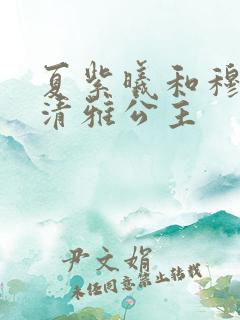 夏紫曦和穆
清雅公主
尹文娟
未经同意禁止转载